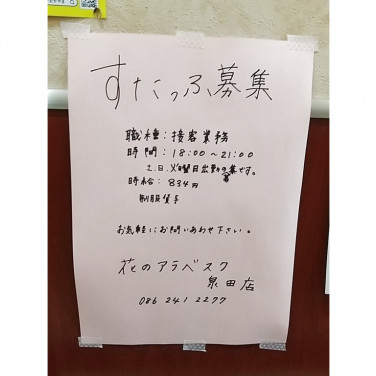 すたっふ募集
職種：接客業務
時間：18:00〜21:00
土.日.火曜日出勤の募集です。
時給：834円
制服貸与
お気軽にお問いあわせ下さい。
花のアラベスク
泉田店
086 241 2277